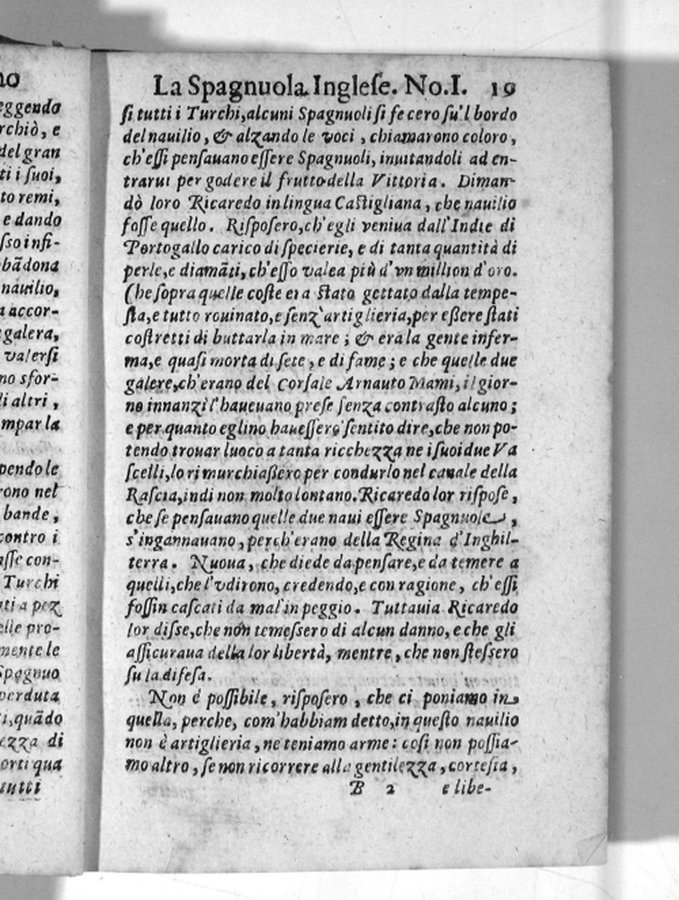 no
eggendo
rchiò, e
del gran
ti i suoi,
to remi,
e dando
sso infi-
bãdona
nauilio,
a accor-
galera,
valersi
no sfor-
li altri,
mpar la
pendo le
rono nel
bande,
contro i
asse con-
Turchi
ati a pez
elle pro-
mente le
Spagnuo
perduta
ti, quãdo
ezza di
orti qua
tutti
La Spagnuola Inglese. No. I. 19
ſi tutti i Turchi, alcuni Spagnuoli ſi fecero ſu'l bordo
del nauilio, & alzando le voci, chiamarono coloro,
ch'eſſi penſauano eſſere Spagnuoli, inuitandoli ad en-
trarui per godere il frutto della Vittoria. Diman-
dò loro Ricaredo in lingua Caſtigliana, che nauilio
foſſe quello. Riſpoſero, ch'egli veniua dall'Indie di
Portogallo carico di ſpecierie, e di tanta quantità di
perle, e diamãti, ch'eſſo valea più d'vn million d'oro.
Che ſopra quelle coſte era ſtato gettato dalla tempe-
ſta, e tutto rouinato, e ſenz'artiglieria, per eßere ſtati
coſtretti di buttarla in mare; & era la gente infer-
ma, e quaſi morta di ſete, e di fame; e che quelle due
galere, ch'erano del Corſale Arnauto Mami, il gior-
no innanzi l'haueuano preſe ſenza contraſto alcuno;
e per quanto eglino haueſſero ſentito dire, che non po-
tendo trouar luoco a tanta ricchezza ne i ſuoi due Va
ſcelli, lo rimurchiaßero per condurlo nel canale della
Raſcia, indi non molto lontano. Ricaredo lor riſpoſe,
che ſe penſauano quelle due naui eſſere Spagnuole,
s'ingannauano, perch'erano della Regina d'Inghil-
terra. Nuoua, che diede da penſare, e da temere a
quelli, che l'vdirono, credendo, e con ragione, ch'eſſi
foſſin caſcati da mal'in peggio. Tuttauia Ricaredo
lor diſſe, che non temeſſero di alcun danno, e che gli
aſſicuraua della lor libertà, mentre, che non ſteſſero
ſu la difeſa.
Non è poſſibile, riſpoſero, che ci poniamo in
quella, perche, com'habbiam detto, in queſto nauilio
non è artiglieria, ne teniamo arme: coſi non poſſia-
mo altro, ſe non ricorrere alla gentilezza, corteſia,
B 2 e libe-